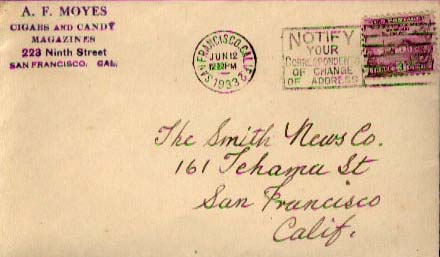 A. F. MOYES
CIGARS AND CANDY
MAGAZINES
223 Ninth Street
SAN FRANCISCO, CAL.
SAN FRANCISCO, CALIF. 2
JUN 12
12PM
1933
NOTIFY
YOUR
CORRESPONDENTS
OF CHANGE
OF ADDRESS
3
The Smith News Co.
161 Tehama St
San Francisco
Calif.